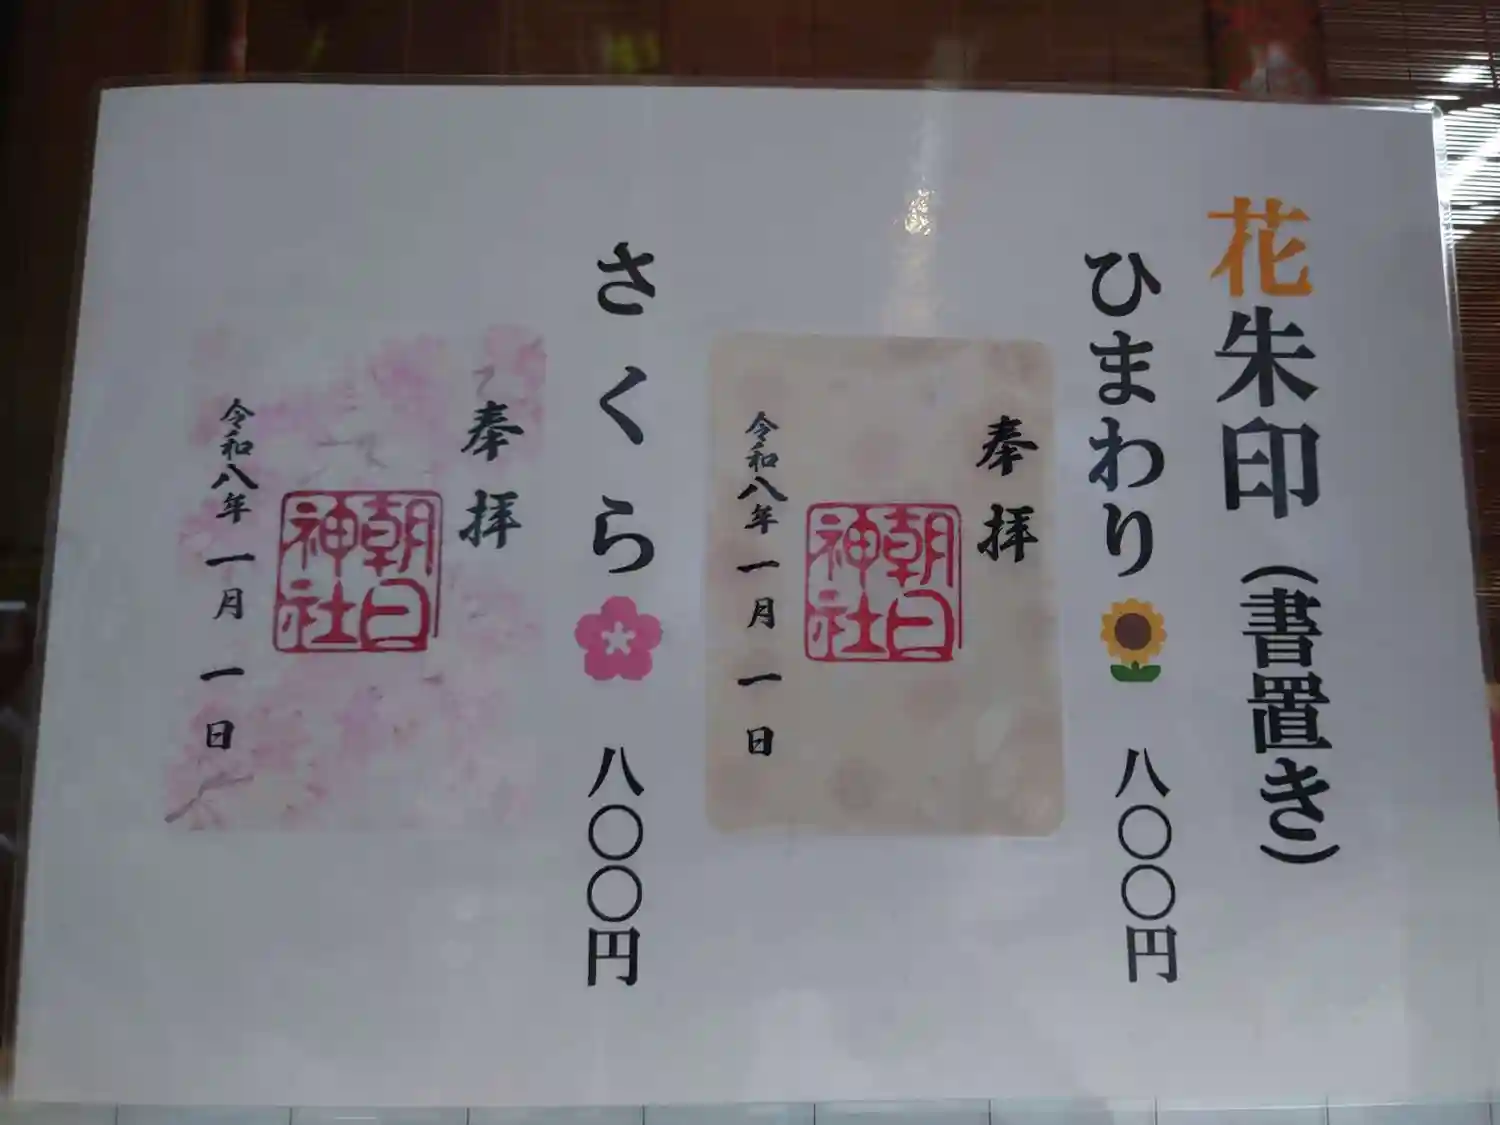 花朱印(書置き)
ひまわり🌻 八〇〇円
奉拝
朝日
神社
令和八年 一月 一日
さくら🌸 八〇〇円
奉拝
朝日
神社
令和八年 一月 一日